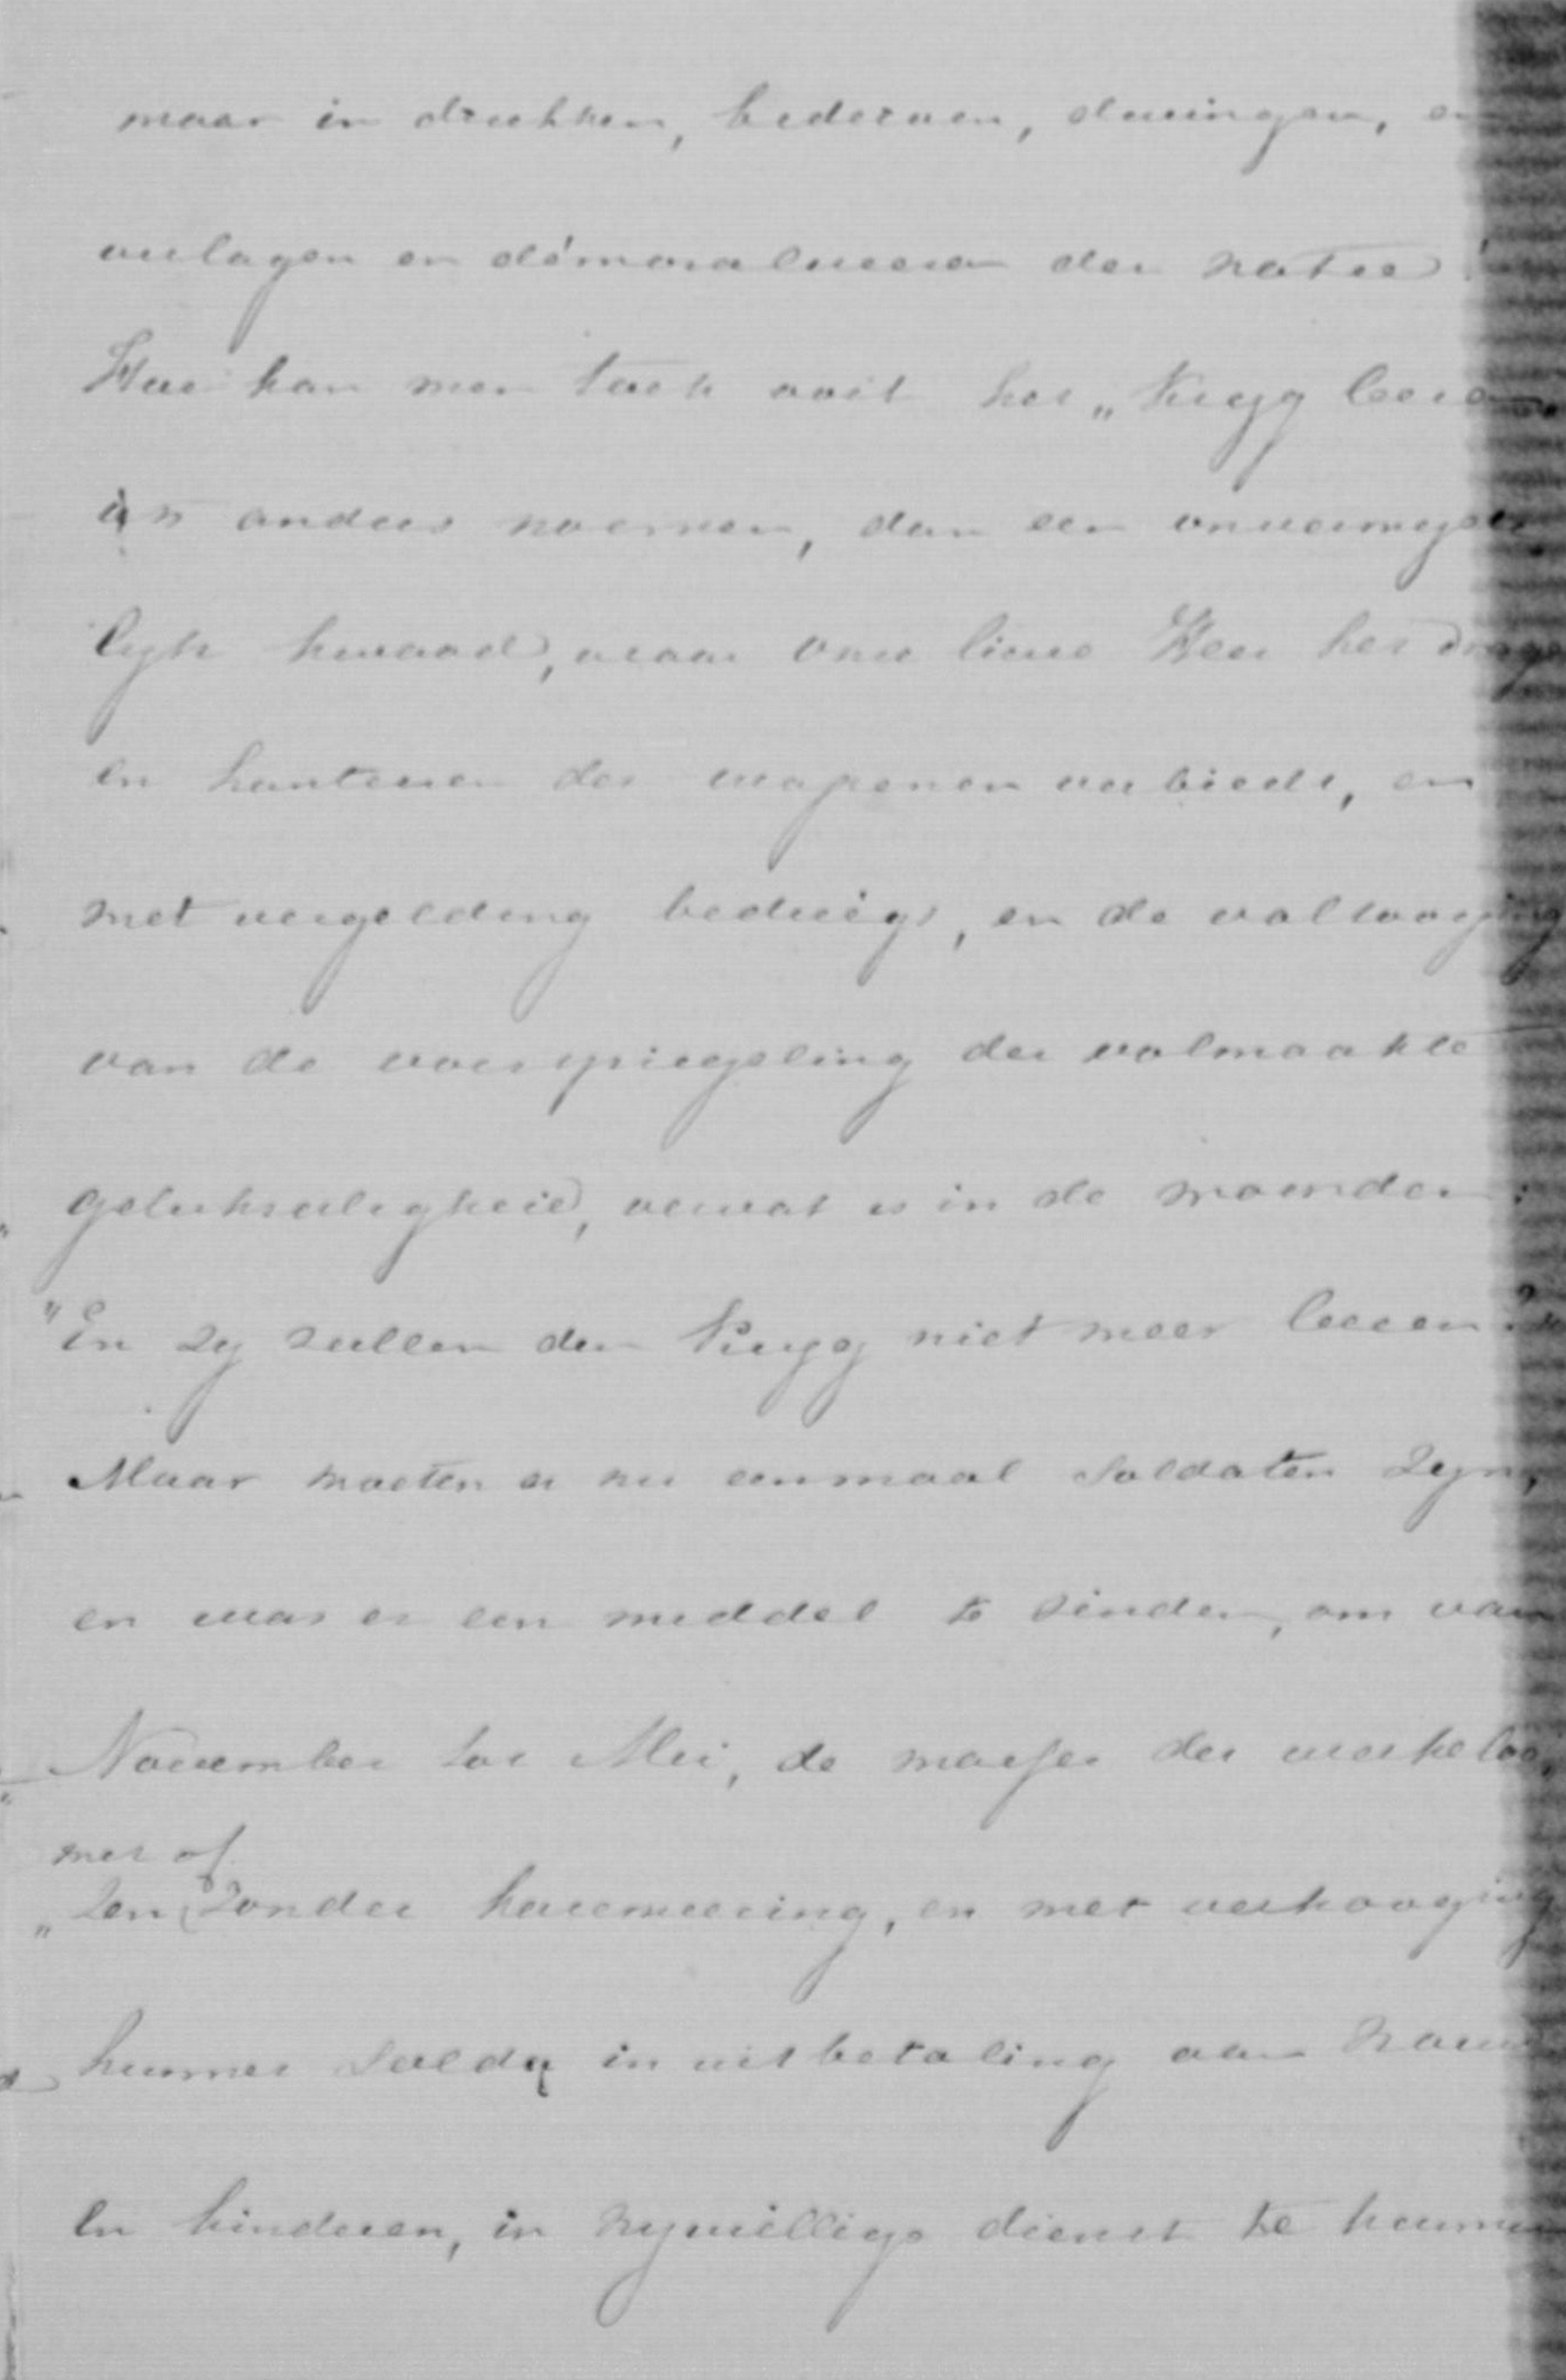 maar in drukken, bederven, dwingen, en
verlagen en démoraliseeren der natie!
Hoe kan men toch ooit het „Krijg leeren
iets anders noemen, dan een onvermijde
lijk kwaad, waar onze lieve Heer het drage
en hanteren der wapenen verbiedt, en
met vergelding bedreigt, en de voltooijing
van de voorspiegeling der volmaakte
gelukzeligheid, vervat is in de woorden:
"En zij zullen den Krijg niet meer leeren."
Maar moeten er nu eenmaal soldaten zijn,
en was er een middel te vinden, om van
November tot Mei, de massa der werkeloo,
met of
„zen zonder kazerneering, en met verhooging
hunner soldij in uitbetaling aan vrouw
en kinderen, in vrijwillige dienst te kunnen